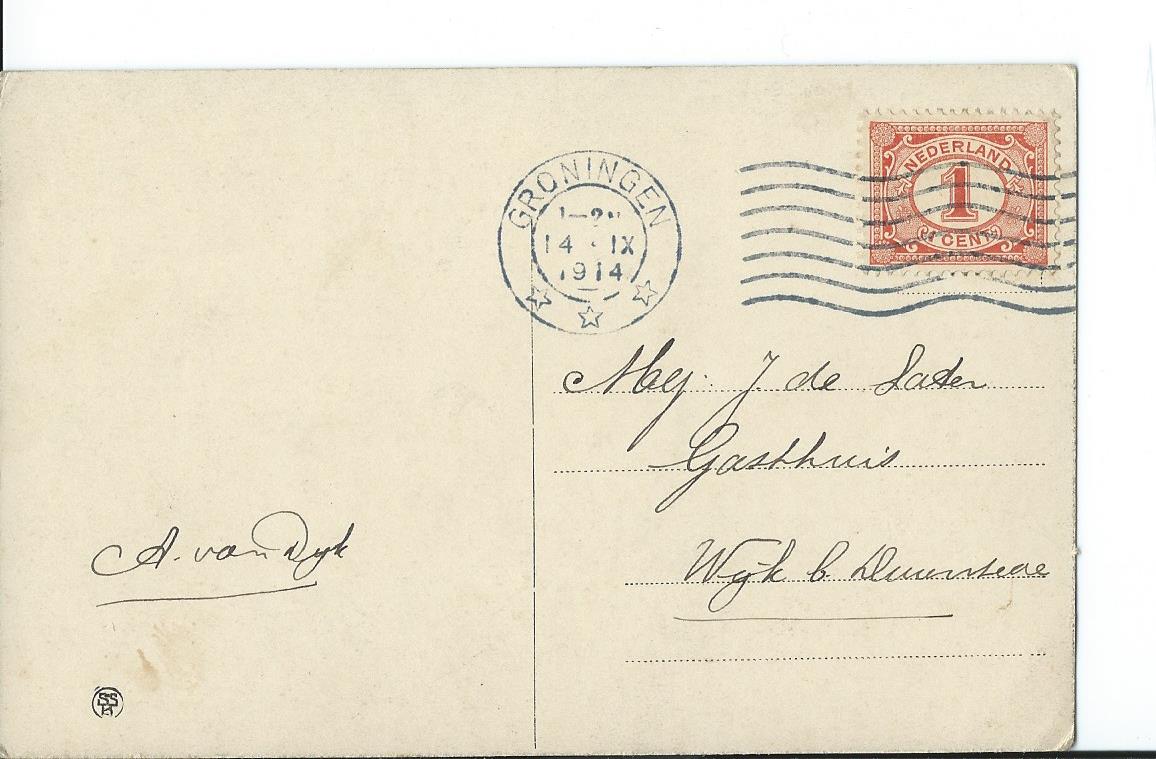 GRONINGEN
1-2N
14 · IX
1914
NEDERLAND
1
1 CENT
Mej. J. de Later
Gasthuis
Wijk b. Duurstede
A. van Dijk
SS